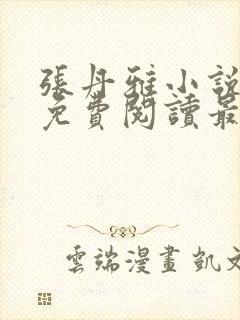 張丹雅小說
免費閱讀最
雲端漫畫 凱文